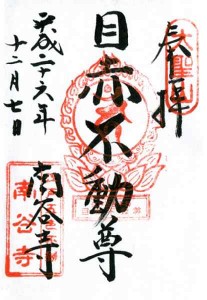 奉拝
目赤不動尊
南谷寺
平成二十六年
十二月七日
南谷寺